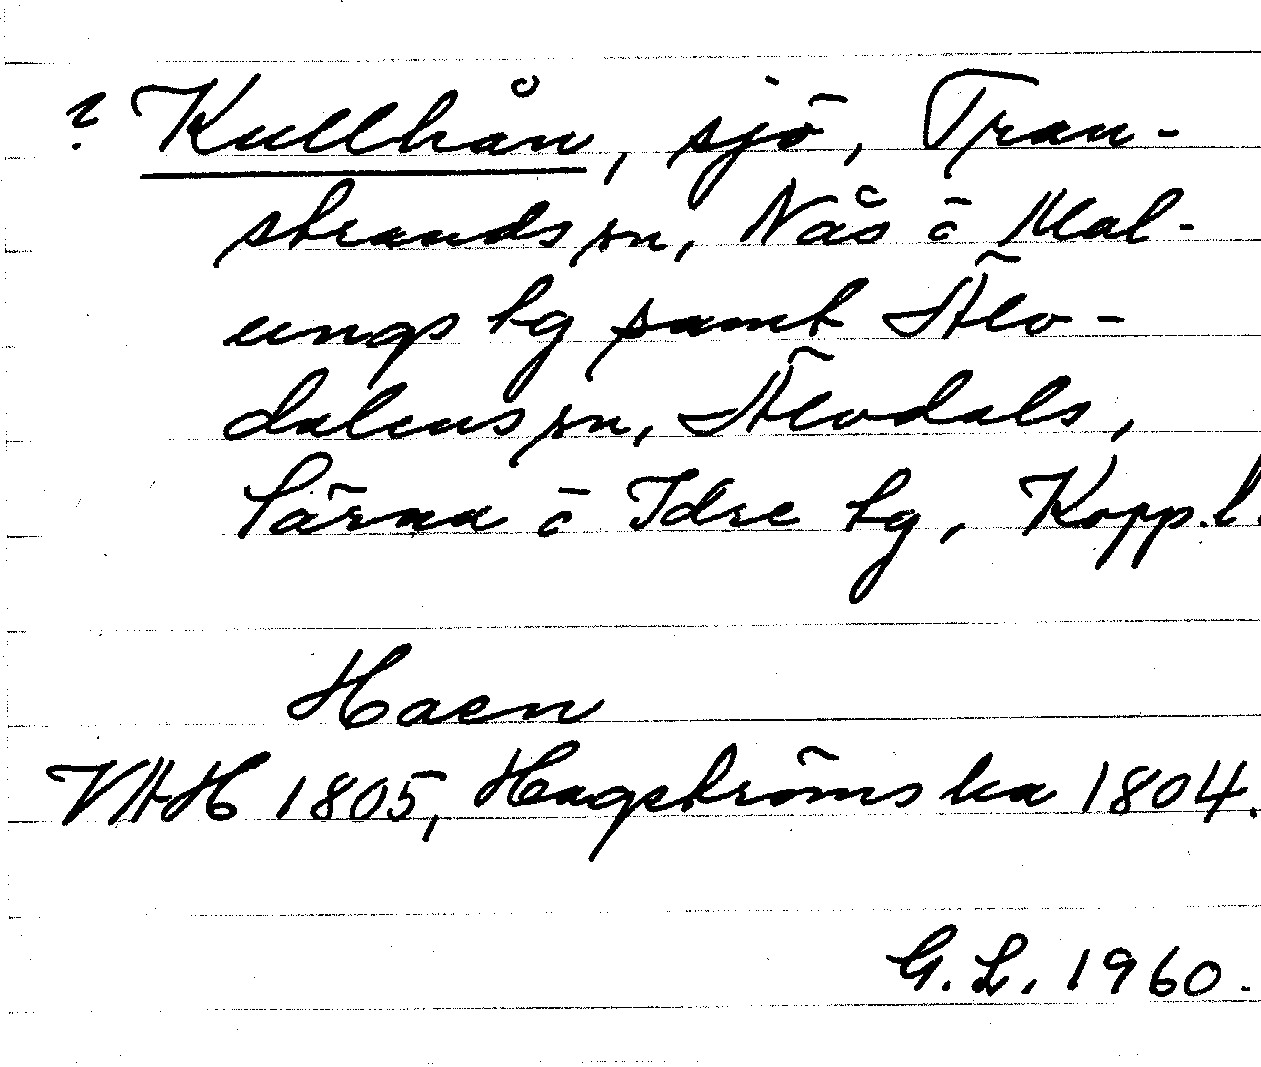 ? Kullhån, sjö, Tran-
strands sn, Nås o Mal-
ungs tg samt Älv-
dalens sn, Älvdals,
Särna o Idre tg, Kopp.l.
Haen
VHH 1805, Hagströmska 1804.
G.L. 1960.